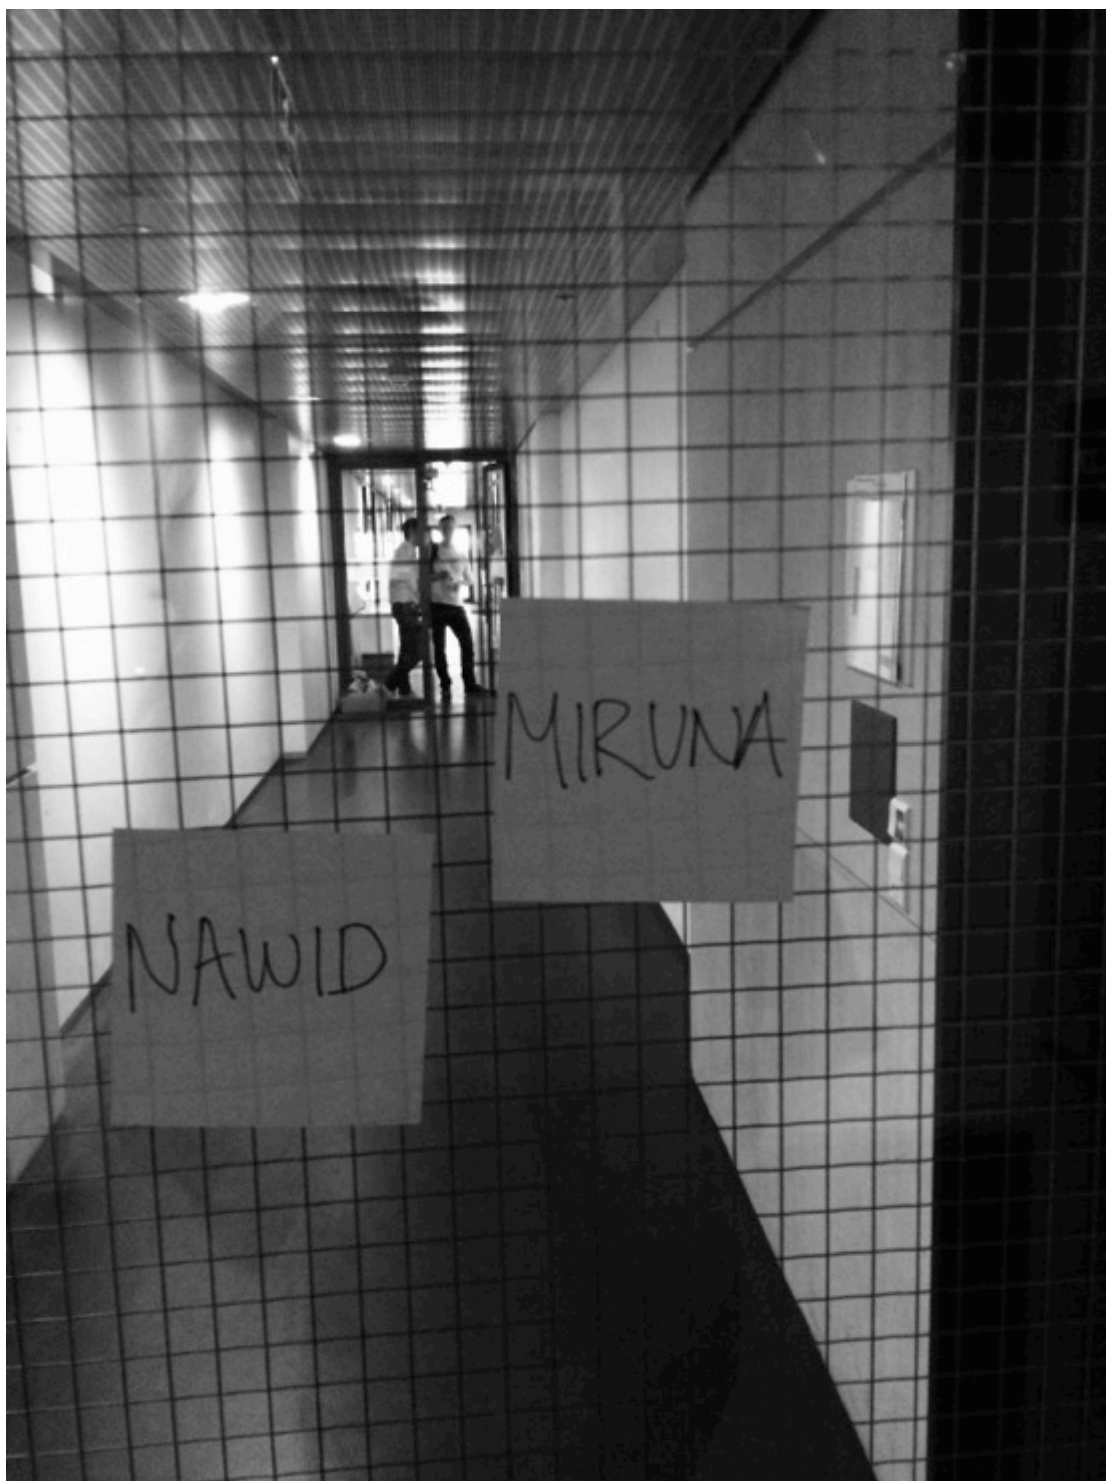 MIRUNA
NAWID